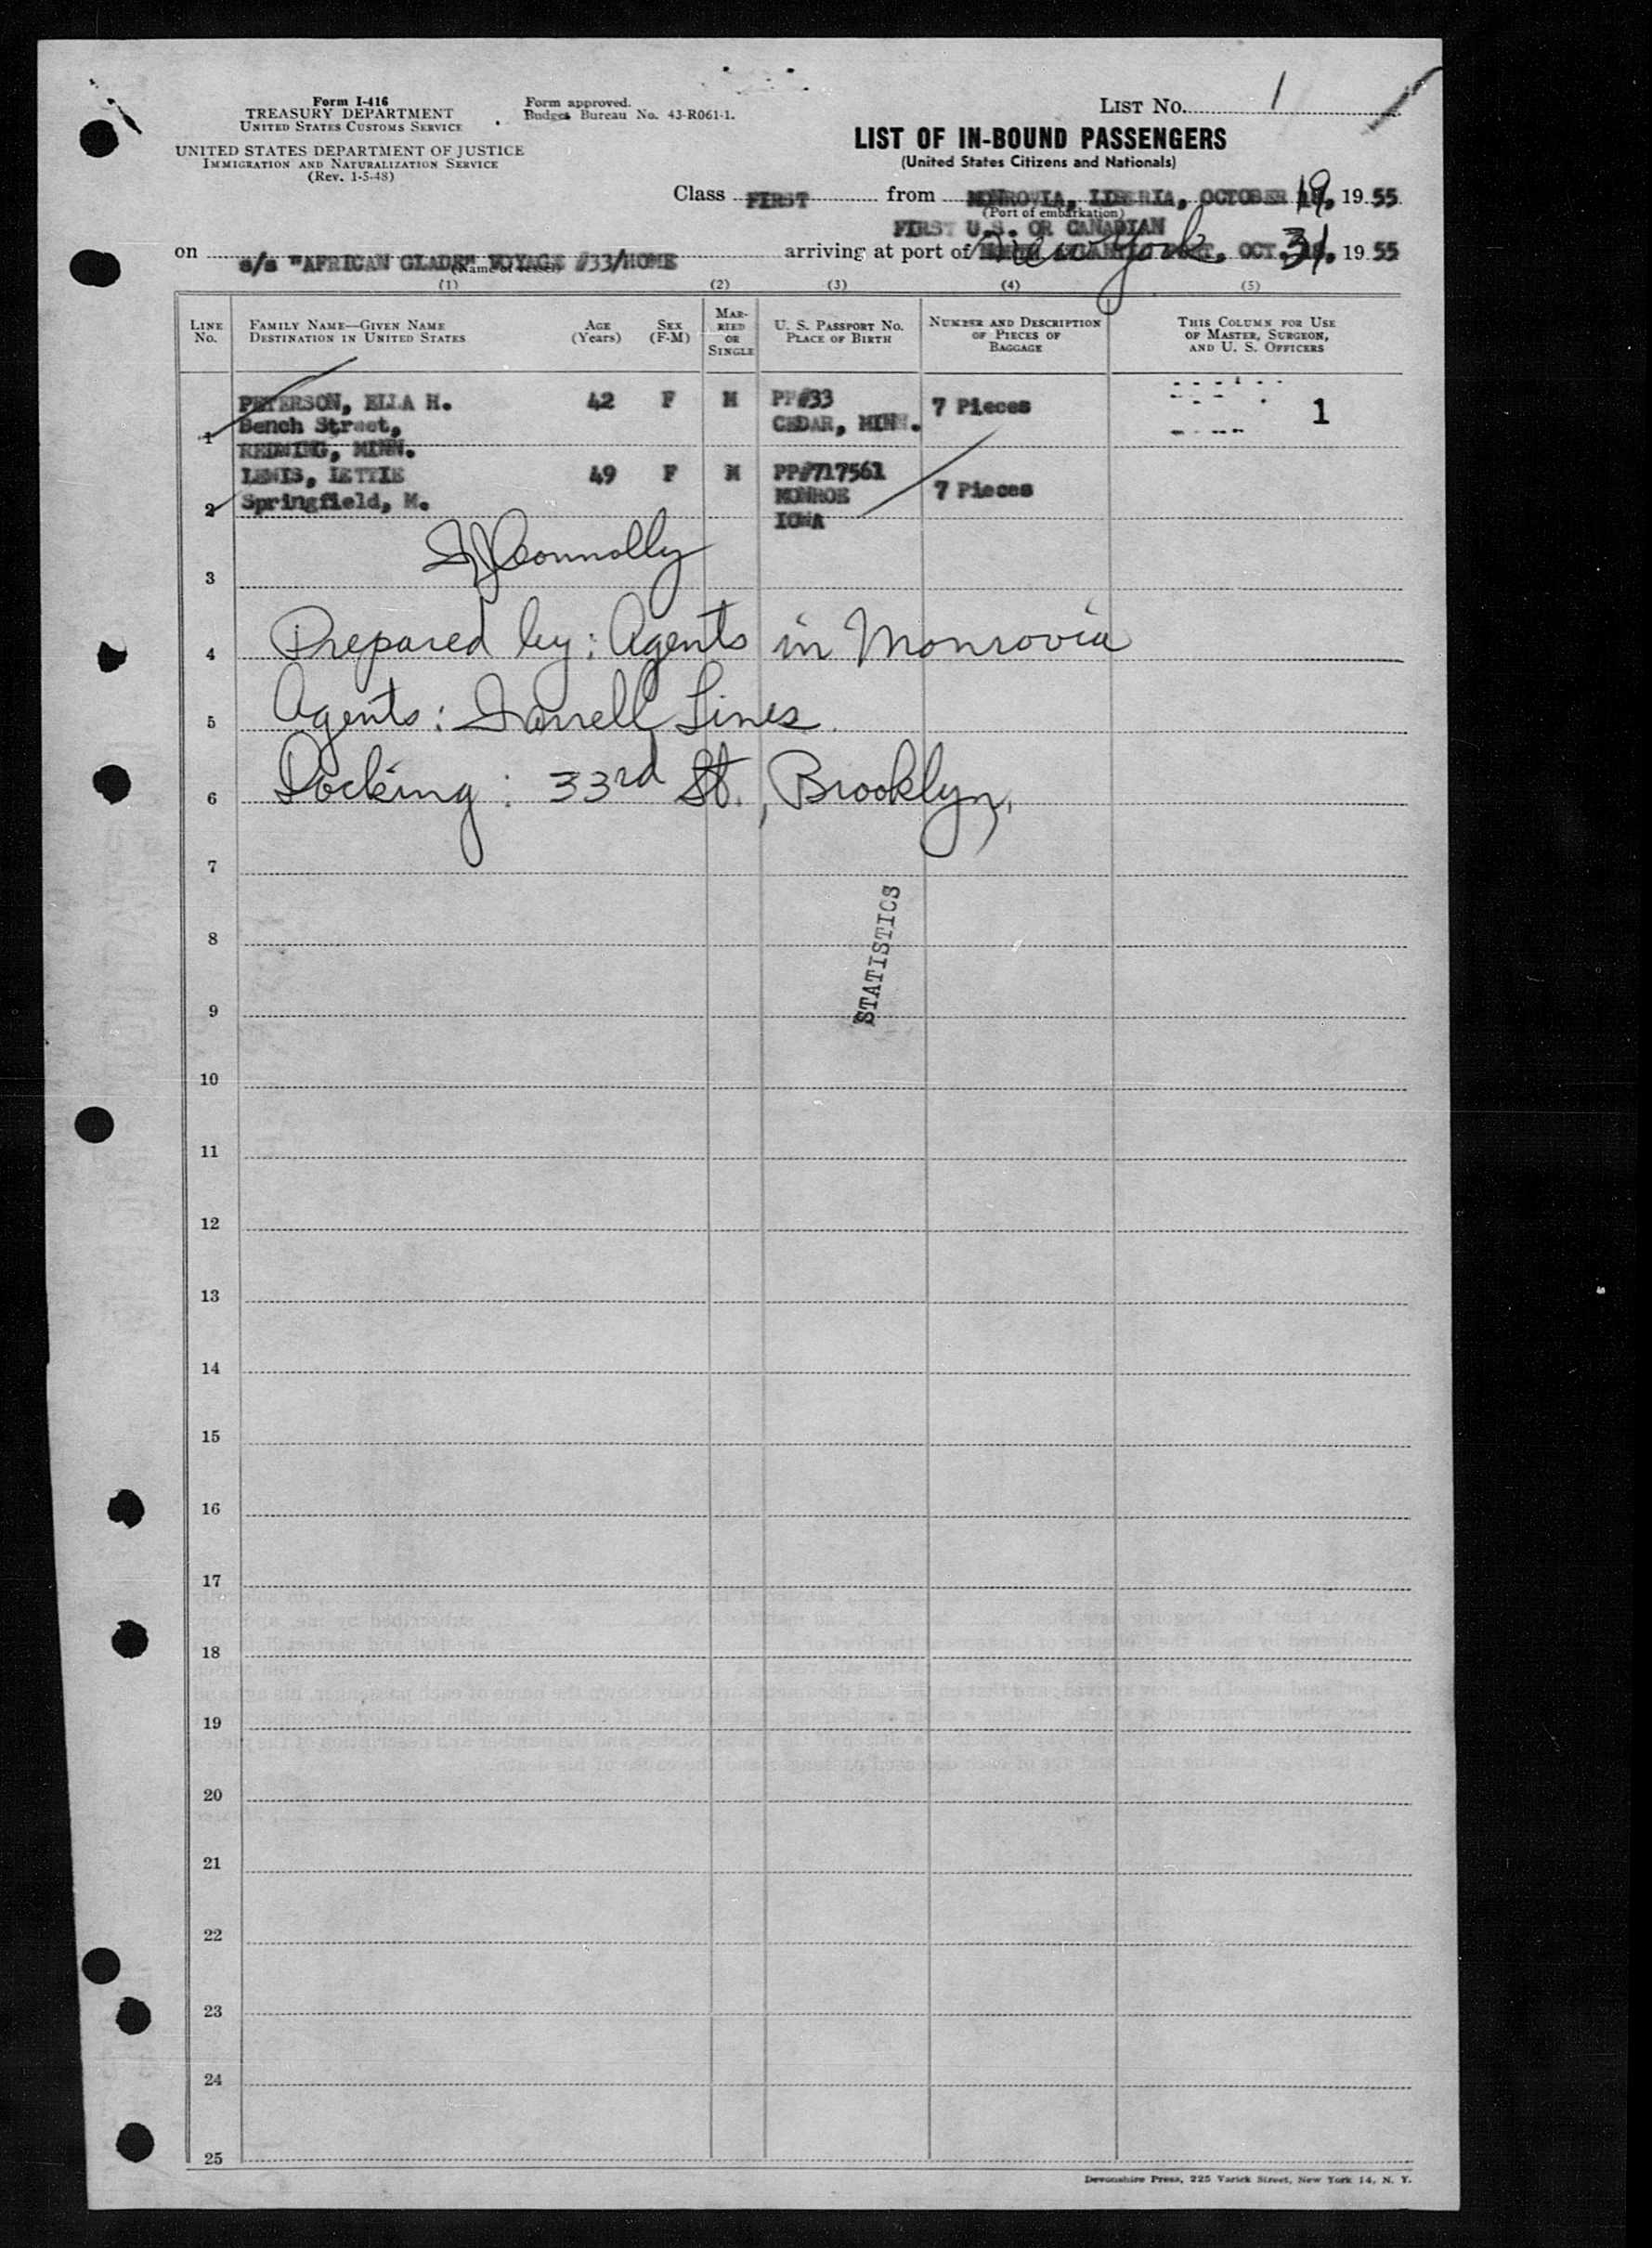 Form I-416
TREASURY DEPARTMENT
UNITED STATES CUSTOMS SERVICE
UNITED STATES DEPARTMENT OF JUSTICE
IMMIGRATION AND NATURALIZATION SERVICE
(Rev. 1-5-48)
Form approved.
Budget Bureau No. 43-R061-1.
LIST NO. 1
LIST OF IN-BOUND PASSENGERS
(United States Citizens and Nationals)
Class FIRST from MONROVIA, LIBERIA, OCTOBER 19, 19 55
(Port of embarkation)
FIRST U.S. OR CANADIAN
on s/s "AFRICAN GLADE" VOYAGE #33/HOME arriving at port of New York, OCT. 31, 19 55
(Name of vessel)
(1) (2) (3) (4) (5)
LINE NO.
FAMILY NAME—GIVEN NAME
DESTINATION IN UNITED STATES
AGE (Years)
SEX (F-M)
MARRIED OR SINGLE
U. S. PASSPORT NO.
PLACE OF BIRTH
NUMBER AND DESCRIPTION
OF PIECES OF
BAGGAGE
THIS COLUMN FOR USE
OF MASTER, SURGEON,
AND U. S. OFFICERS
1 PETERSON, ELLA H. 42 F M PP#33 7 Pieces 1
Bench Street, CEDAR, MINN.
REDWING, MINN.
2 LEWIS, LETTIE 49 F M PP#717561 7 Pieces
Springfield, M. MONROE
IOWA
Connolly
3
4 Prepared by: Agents in Monrovia
5 Agents: Farrell Lines.
6 Docking: 33rd St., Brooklyn,
7
STATISTICS
8
9
10
11
12
13
14
15
16
17
18
19
20
21
22
23
24
25
Devonshire Press, 225 Varick Street, New York 14, N. Y.